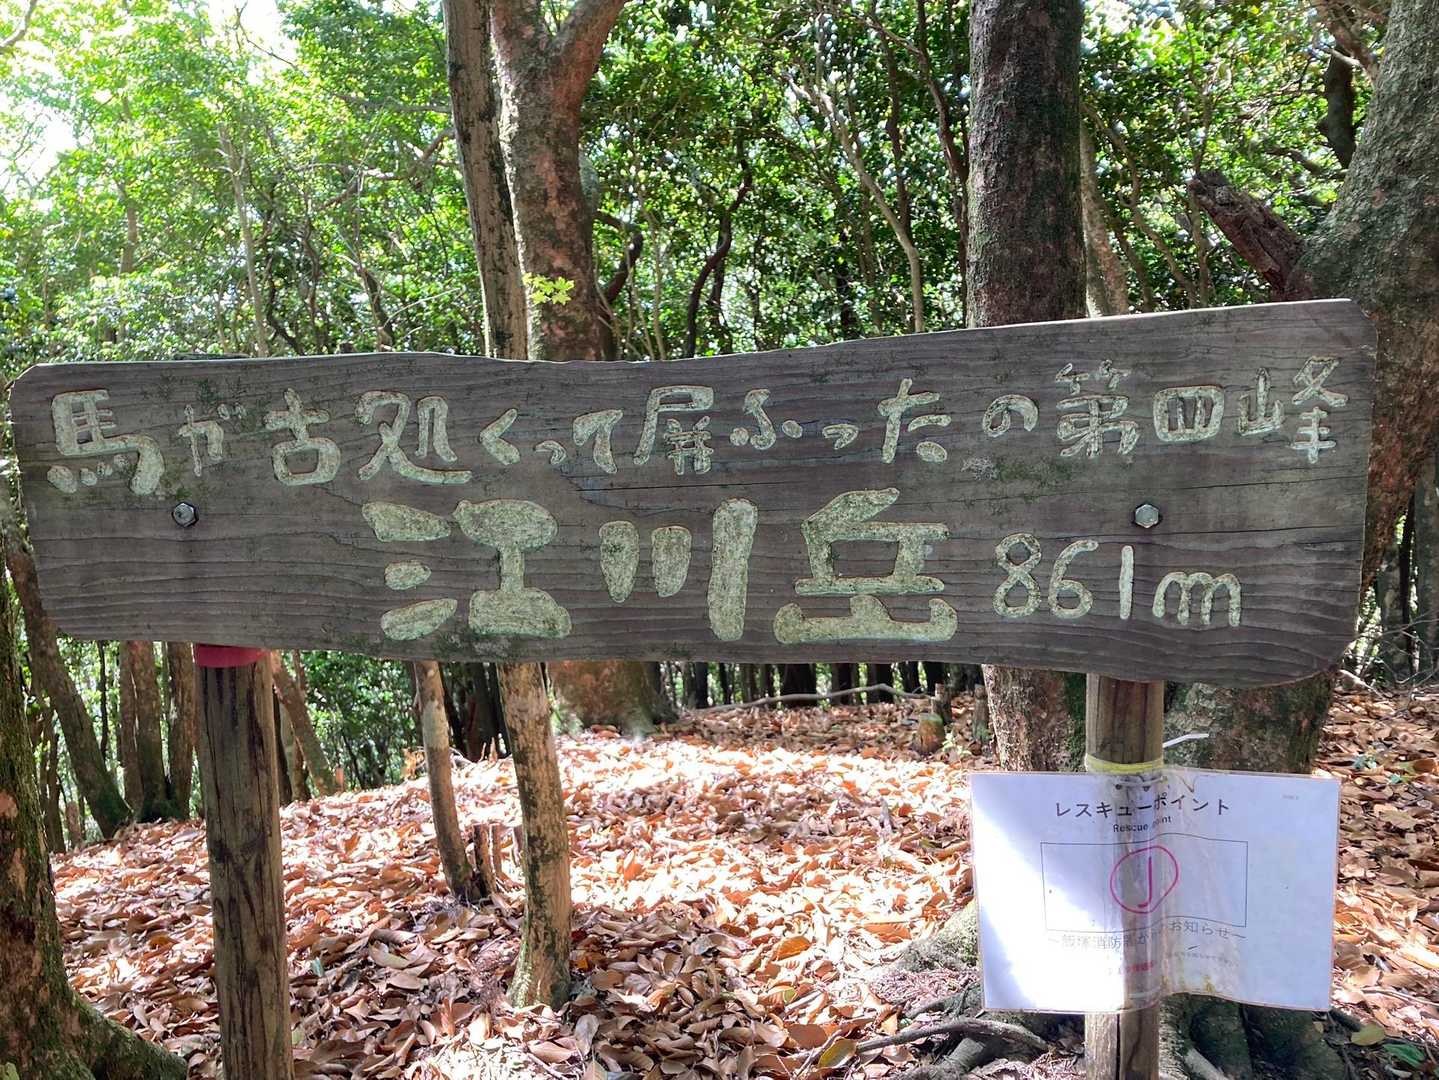 馬が古処くって屏ふったの第四峰
江川岳 861m
レスキューポイント
Rescue point
J
～飯塚消防署からのお知らせ～